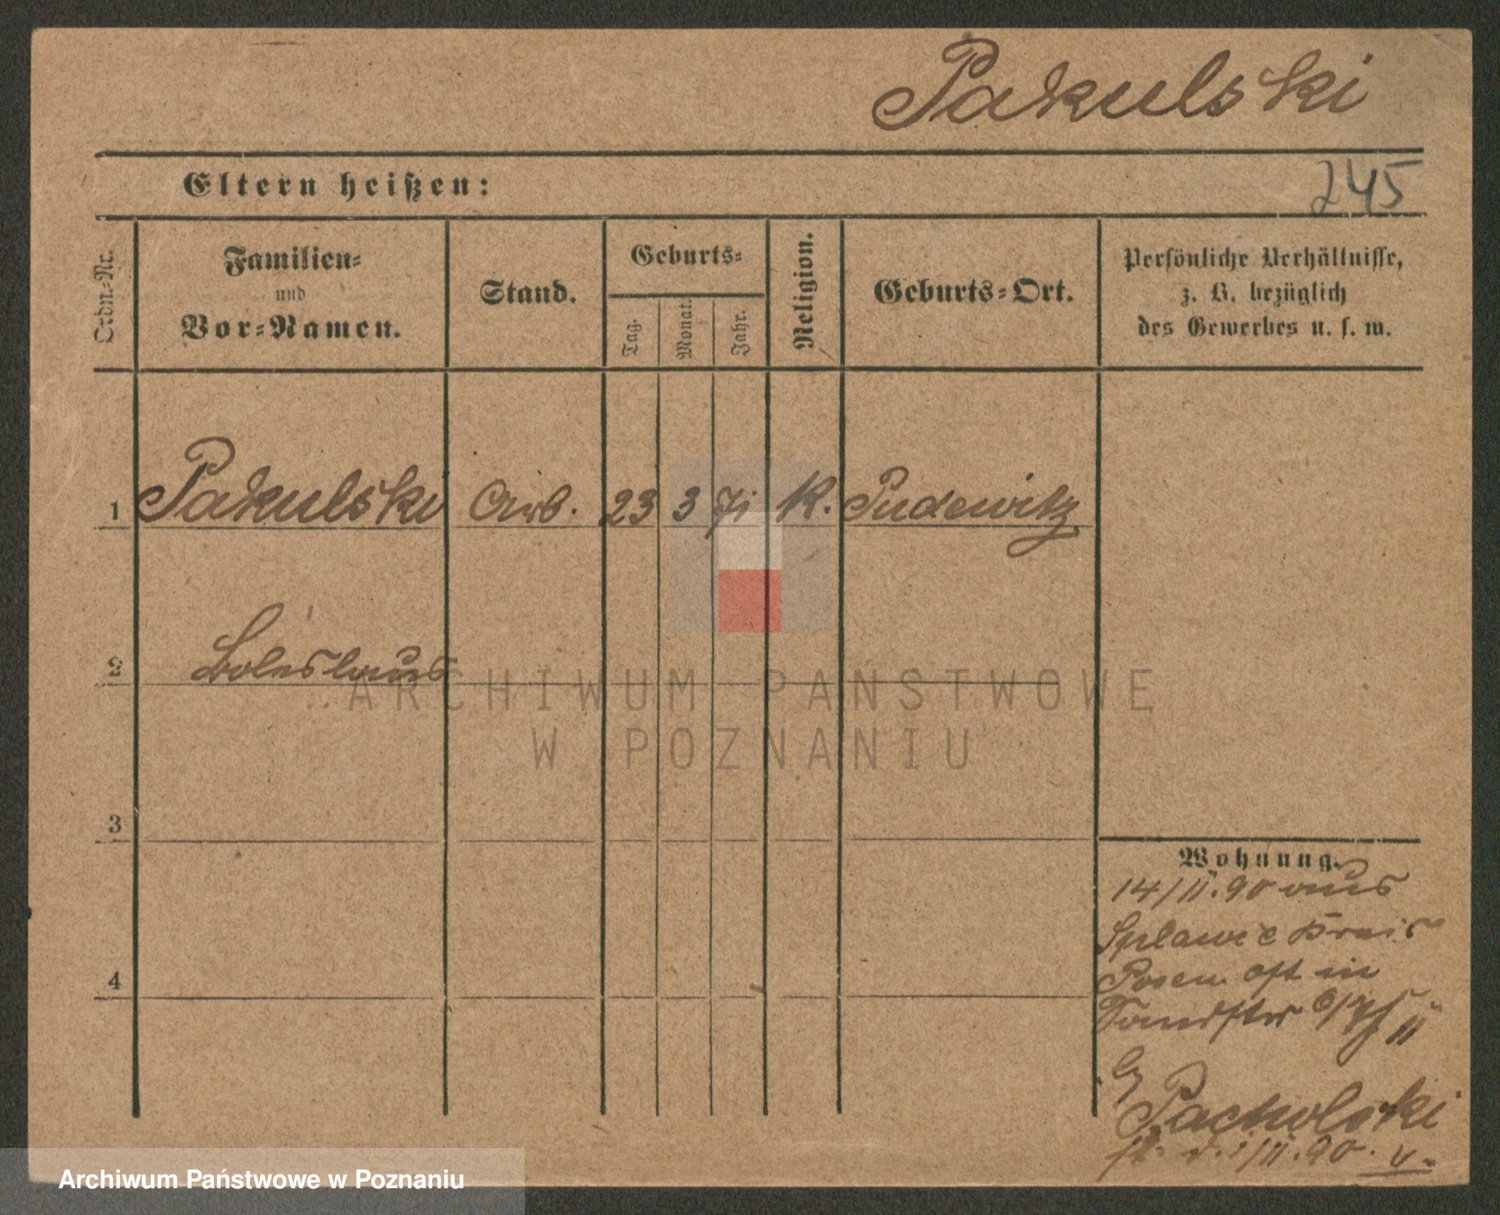 Pakulski
Eltern heißen:
245
Ordn.-Nr.
Familien-
und
Vor-Namen.
Stand.
Geburts-
Tag.
Monat.
Jahr.
Religion.
Geburts-Ort.
Persönliche Verhältnisse,
z. B. bezüglich
des Gewerbes u. s. w.
1 Pakulski Arb. 23 3 71 K. Pudewitz
2 Boleslaus
3
4
Wohnung.
14/II.90 aus
Splawie Kreis
Posen
by
Pacholski
1/II.90.
ARCHIWUM PAŃSTWOWE
W POZNANIU
Archiwum Państwowe w Poznaniu